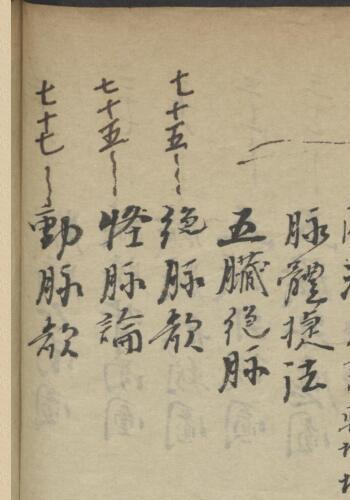 脉體捷法
五臟绝脉
七十五 绝脉歌
七十五 怪脉論
七十七 動脉歌